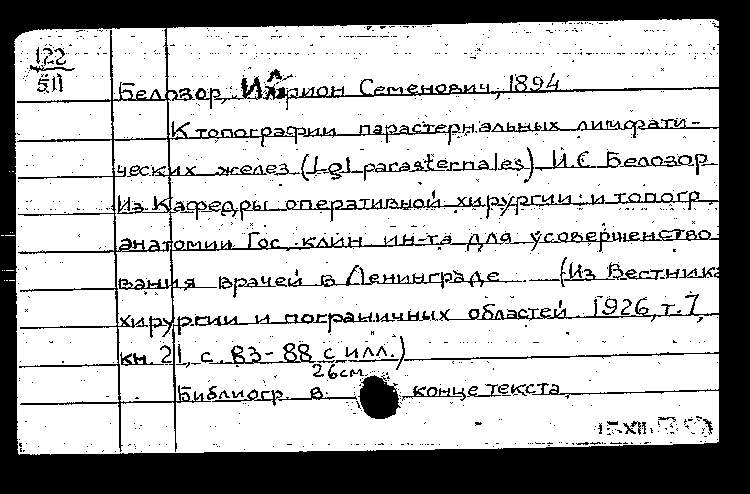 122
511
Белозор, Иларион Семенович, 1894
К топографии парастернальных лимфати-
ческих желез (Lgl parasternales) И.С Белозор
Из Кафедры оперативной хирургии и топогр.
анатомии Гос. клин ин-та для усовершенство
вания врачей в Ленинграде (Из Вестника
хирургии и пограничных областей 1926, т. 7,
кн. 21, с. 83-88 с илл.)
26см
Библиогр. в конце текста.